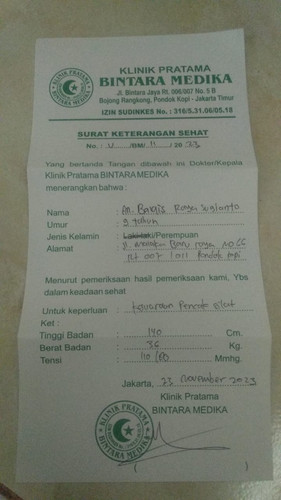 KLINIK PRATAMA
BINTARA MEDIKA
Jl. Bintara Jaya Rt. 006/007 No. 5 B
Bojong Rangkong, Pondok Kopi - Jakarta Timur
IZIN SUDINKES No. : 316/5.31.06/05.18
SURAT KETERANGAN SEHAT
No. : /BM/ 11 /20 23
Yang bertanda Tangan dibawah ini Dokter/Kepala
Klinik Pratama BINTARA MEDIKA
menerangkan bahwa :
Nama : An.
Umur : 9 tahun
Jenis Kelamin : Laki-laki/Perempuan
Alamat : Jl. Baru raya no 66
Rt 007 / 011 Pondok kopi
Menurut pemeriksaan hasil pemeriksaan kami, Ybs
dalam keadaan sehat
Untuk keperluan : Kejuaraan Pencak Silat
Ket :
Tinggi Badan : 140 Cm.
Berat Badan : 36 Kg.
Tensi : 110 / Mmhg.
Jakarta, 23 November 2023
Klinik Pratama
BINTARA MEDIKA
KLINIK PRATAMA
BINTARA MEDIKA
( )